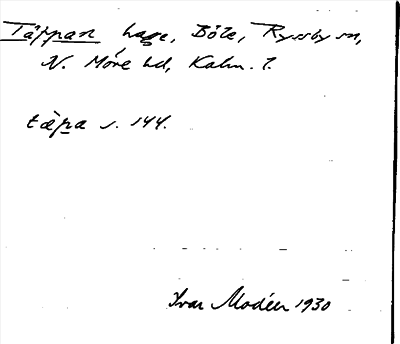 Täppan hage, Böle, Ryssby sn,
N. Möre hd, Kalm. l.
täpa s. 144.
Ivar Modéer 1930